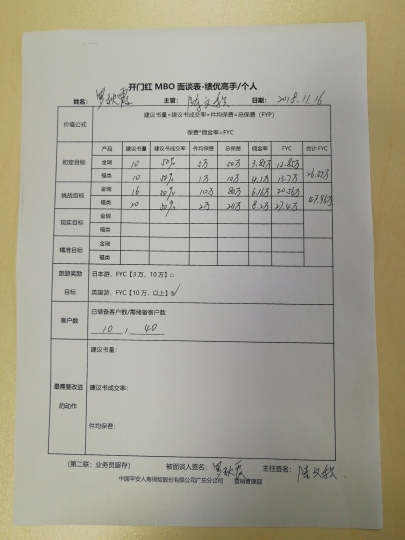 开门红 MBO 面谈表-绩优高手/个人
姓名: 主管: 日期: 2018.11.16
价值公式
建议书量*建议书成交率*件均保费=总保费(FYP)
保费*佣金率=FYC
产品 建议书量 建议书成交率 件均保费 总保费 佣金率 FYC 合计 FYC
初定目标 金瑞 10 50% 5万 50万 12.85万
福类 10 50% 1万 10万 4.1万 13.7万
挑战目标 金瑞 16 50% 10万 80万 6.16万 20.56万 47.96万
福类 20 50% 2万 20万 8.2万 27.4万
现实目标 金瑞
福类
精准目标 金瑞
福类
旅游奖励目标
日本游,FYC【3 万,10 万】□
英国游,FYC【10 万,以上】☑
客户数
已储备客户数/需储备客户数
10 / 40
最需要改进的动作
建议书量:
建议书成交率:
件均保费:
(第二联:业务员留存) 被面谈人签名: 主任签名:
中国平安人寿保险股份有限公司广东分公司 营销管理部